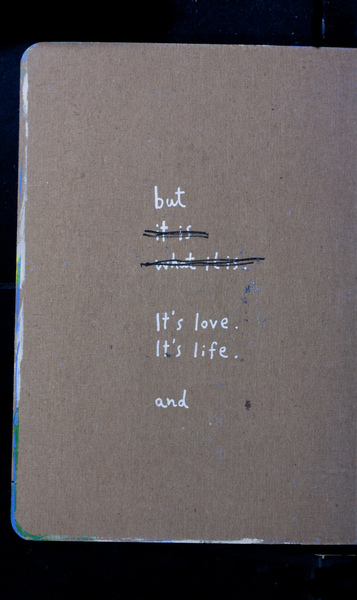 but
it is
what it is.
It's love.
It's life.
and